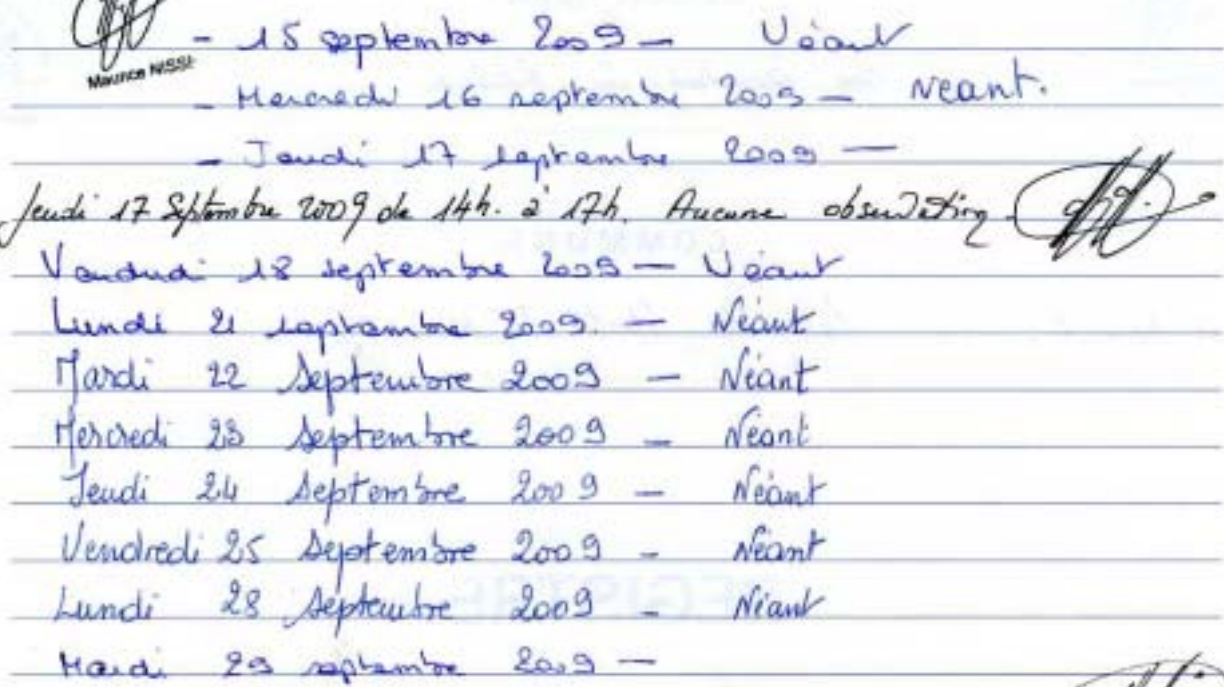 - 15 septembre 2009 - Néant
Maurice NISSI
- Mercredi 16 septembre 2009 - Néant.
- Jeudi 17 septembre 2009 -
Jeudi 17 Septembre 2009 de 14h. à 17h. Aucune observation
Vendredi 18 septembre 2009 - Néant
Lundi 21 septembre 2009 - Néant
Mardi 22 Septembre 2009 - Néant
Mercredi 23 Septembre 2009 - Néant
Jeudi 24 Septembre 2009 - Néant
Vendredi 25 Septembre 2009 - Néant
Lundi 28 Septembre 2009 - Néant
Mardi 29 septembre 2009 -